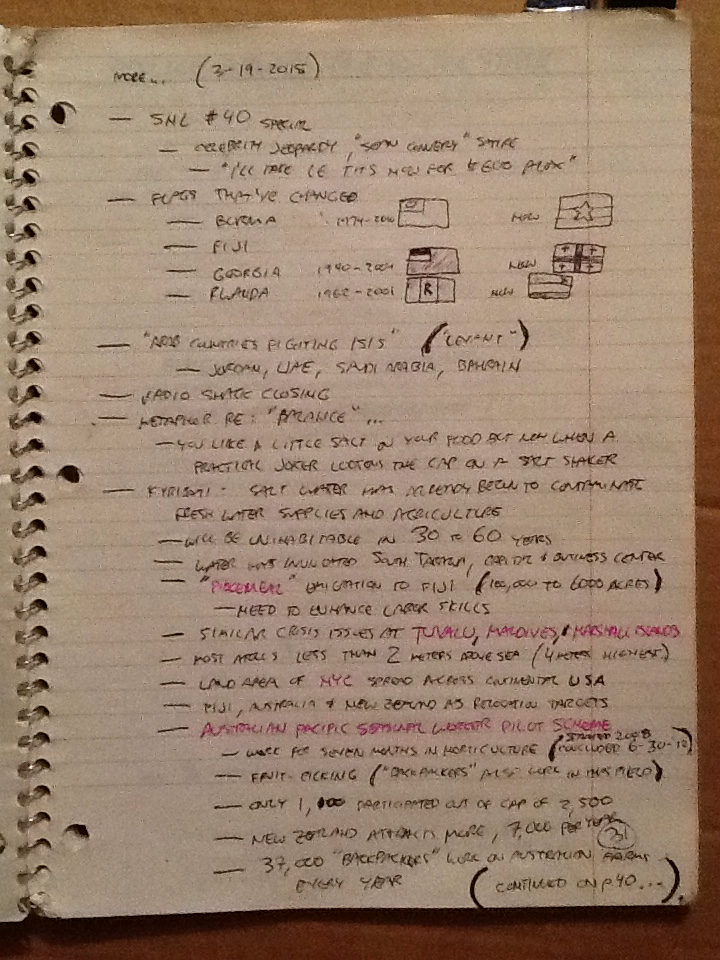 MORE... (3-19-2015)
— SNL #40 SPECIAL
— CELEBRITY JEOPARDY, "SEAN CONNERY" SATIRE
— "I'LL TAKE LE TITS NOW FOR $600 ALEX"
— FLAGS THAT'VE CHANGED
— BURMA 1974-2010 NEW
— FIJI
— GEORGIA 1990-2004 NEW
— RWANDA 1962-2001 R NEW
— "ARAB COUNTRIES FIGHTING ISIS" ("LEVANT")
— JORDAN, UAE, SAUDI ARABIA, BAHRAIN
— RADIO SHACK CLOSING
— METAPHOR RE: "BALANCE"...
— YOU LIKE A LITTLE SALT ON YOUR FOOD BUT NOT WHEN A
PRACTICAL JOKER LOOSENS THE CAP ON A SALT SHAKER
— KIRIBATI - SALT WATER HAS ALREADY BEGUN TO CONTAMINATE
FRESH WATER SUPPLIES AND AGRICULTURE
— WILL BE UNINHABITABLE IN 30 TO 60 YEARS
— WATER HAS INUNDATED SOUTH TARAWA, CAPITAL & BUSINESS CENTER
— "PIECEMEAL" EMIGRATION TO FIJI (100,000 TO 6000 ACRES)
— NEED TO ENHANCE LABOR SKILLS
— SIMILAR CRISIS ISSUES AT TUVALU, MALDIVES, & MARSHALL ISLANDS
— MOST ATOLLS LESS THAN 2 METERS ABOVE SEA (4 METERS HIGHEST)
— LAND AREA OF NYC SPREAD ACROSS CONTINENTAL USA
— FIJI, AUSTRALIA & NEW ZEALAND AS RELOCATION TARGETS
— AUSTRALIAN PACIFIC SEASONAL WORKER PILOT SCHEME
— WORK FOR SEVEN MONTHS IN HORTICULTURE (STARTED 2008 CONCLUDED 6-30-12)
— FRUIT-PICKING ("BACKPACKERS" MUST WORK IN THIS FIELD)
— ONLY 1,100 PARTICIPATED OUT OF CAP OF 2,500
— NEW ZEALAND ATTRACTS MORE, 7,000 PER YEAR
31
— 37,000 "BACKPACKERS" WORK ON AUSTRALIAN FARMS
EVERY YEAR (CONTINUED ON p40...)